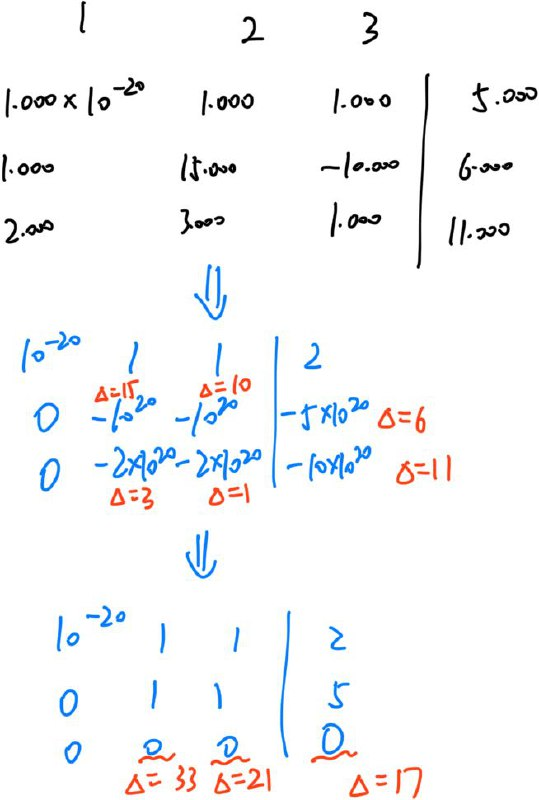 1 2 3
1.000 × 10⁻²⁰ 1.000 1.000 | 5.000
1.000 15.000 -10.000 | 6.000
2.000 3.000 1.000 | 11.000
⇓
10⁻²⁰ 1 1 | 2
Δ=15 Δ=10
0 -10²⁰ -10²⁰ | -5×10²⁰ Δ=6
0 -2×10²⁰ -2×10²⁰ | -10×10²⁰ Δ=11
Δ=3 Δ=1
⇓
10⁻²⁰ 1 1 | 2
0 1 1 | 5
0 0 0 | 0
Δ=33 Δ=21 Δ=17